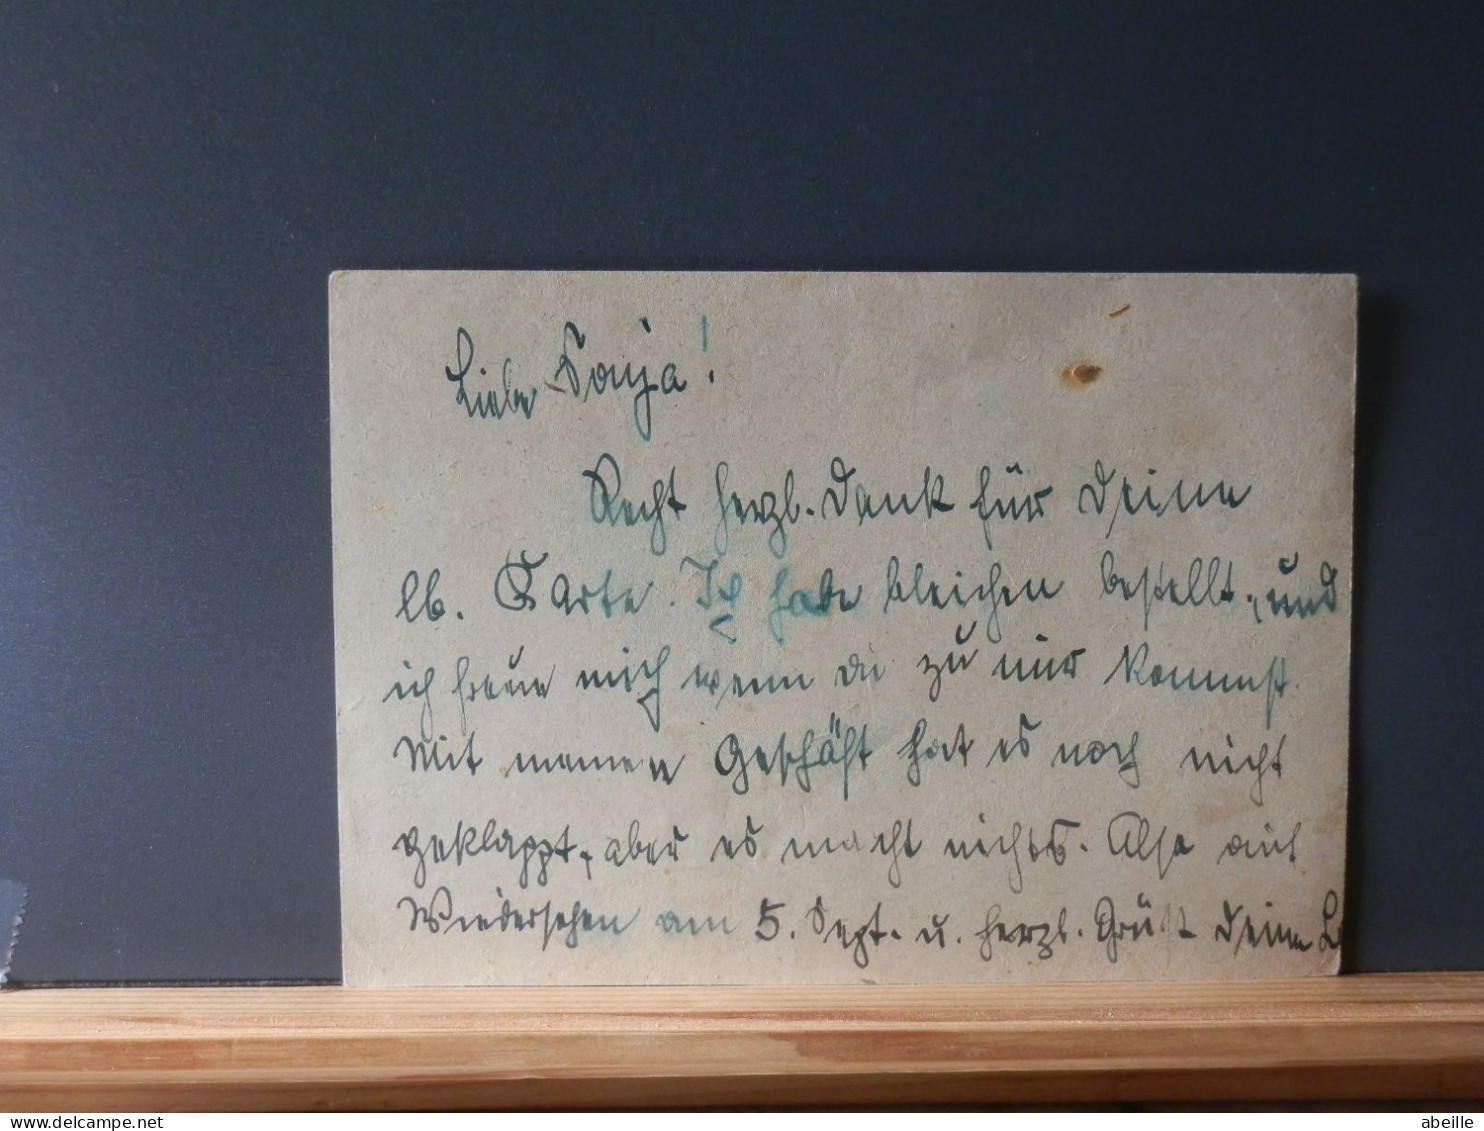 Liebe Sonja!
Recht herzl. Dank für Deine
lb. Karte. Ich habe bleichen bestellt, und
ich freue mich wenn du zu mir kommst.
Mit meinen Geschäft hat es noch nicht
geklappt, aber es macht nichts. Also auf
Wiedersehen am 5. Sept. u. herzl. Grüße Deine
abeille